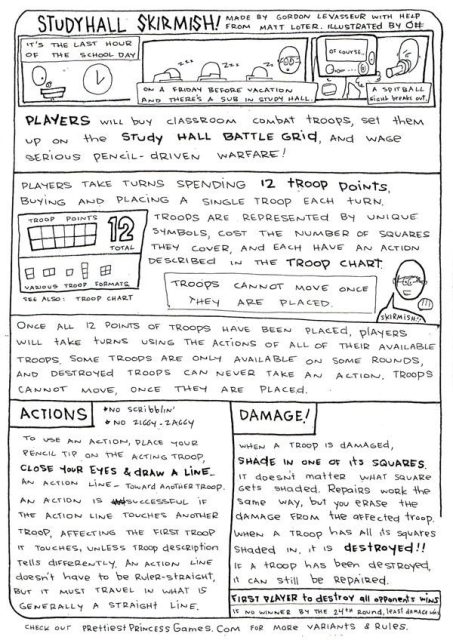 STUDYHALL SKIRMISH! MADE BY GORDON LEVASSEUR WITH HELP
FROM MATT LOTER. ILLUSTRATED BY
IT'S THE LAST HOUR
OF THE SCHOOL DAY
zzz
zzz
ON A FRIDAY BEFORE VACATION
AND THERE'S A SUB IN STUDY HALL.
OF COURSE..
A SPITBALL
FIGHT BREAKS OUT.
PLAYERS WILL BUY CLASSROOM COMBAT TROOPS, SET THEM
UP ON THE STUDY HALL BATTLE GRID, AND WAGE
SERIOUS PENCIL-DRIVEN WARFARE!
PLAYERS TAKE TURNS SPENDING 12 TROOP POINTS,
BUYING AND PLACING A SINGLE TROOP EACH TURN.
TROOP POINTS
12
TOTAL
VARIOUS TROOP FORMATS
SEE ALSO: TROOP CHART
TROOPS ARE REPRESENTED BY UNIQUE
SYMBOLS, COST THE NUMBER OF SQUARES
THEY COVER, AND EACH HAVE AN ACTION
DESCRIBED IN THE TROOP CHART.
TROOPS CANNOT MOVE ONCE
THEY ARE PLACED.
SKIRMISH!
ONCE ALL 12 POINTS OF TROOPS HAVE BEEN PLACED, PLAYERS
WILL TAKE TURNS USING THE ACTIONS OF ALL OF THEIR AVAILABLE
TROOPS. SOME TROOPS ARE ONLY AVAILABLE ON SOME ROUNDS,
AND DESTROYED TROOPS CAN NEVER TAKE AN ACTION. TROOPS
CANNOT MOVE, ONCE THEY ARE PLACED.
ACTIONS
*NO SCRIBBLIN'
*NO ZIGGY-ZAGGY
TO USE AN ACTION, PLACE YOUR
PENCIL TIP ON THE ACTING TROOP,
CLOSE YOUR EYES & DRAW A LINE -
AN ACTION LINE - TOWARD ANOTHER TROOP.
AN ACTION IS SUCCESSFUL IF
THE ACTION LINE TOUCHES ANOTHER
TROOP, AFFECTING THE FIRST TROOP
IT TOUCHES, UNLESS TROOP DESCRIPTION
TELLS DIFFERENTLY. AN ACTION LINE
DOESN'T HAVE TO BE RULER-STRAIGHT,
BUT IT MUST TRAVEL IN WHAT IS
GENERALLY A STRAIGHT LINE.
DAMAGE!
WHEN A TROOP IS DAMAGED,
SHADE IN ONE OF ITS SQUARES.
IT DOESN'T MATTER WHAT SQUARE
GETS SHADED. REPAIRS WORK THE
SAME WAY, BUT YOU ERASE THE
DAMAGE FROM THE AFFECTED TROOP.
WHEN A TROOP HAS ALL ITS SQUARES
SHADED IN, IT IS DESTROYED!!
IF A TROOP HAS BEEN DESTROYED,
IT CAN STILL BE REPAIRED.
FIRST PLAYER TO DESTROY ALL OPPONENTS WINS
IS NO WINNER BY THE 24TH ROUND, LEAST DAMAGE WINS
CHECK OUT PRETTIESTPRINCESSGAMES.COM FOR MORE VARIANTS & RULES.